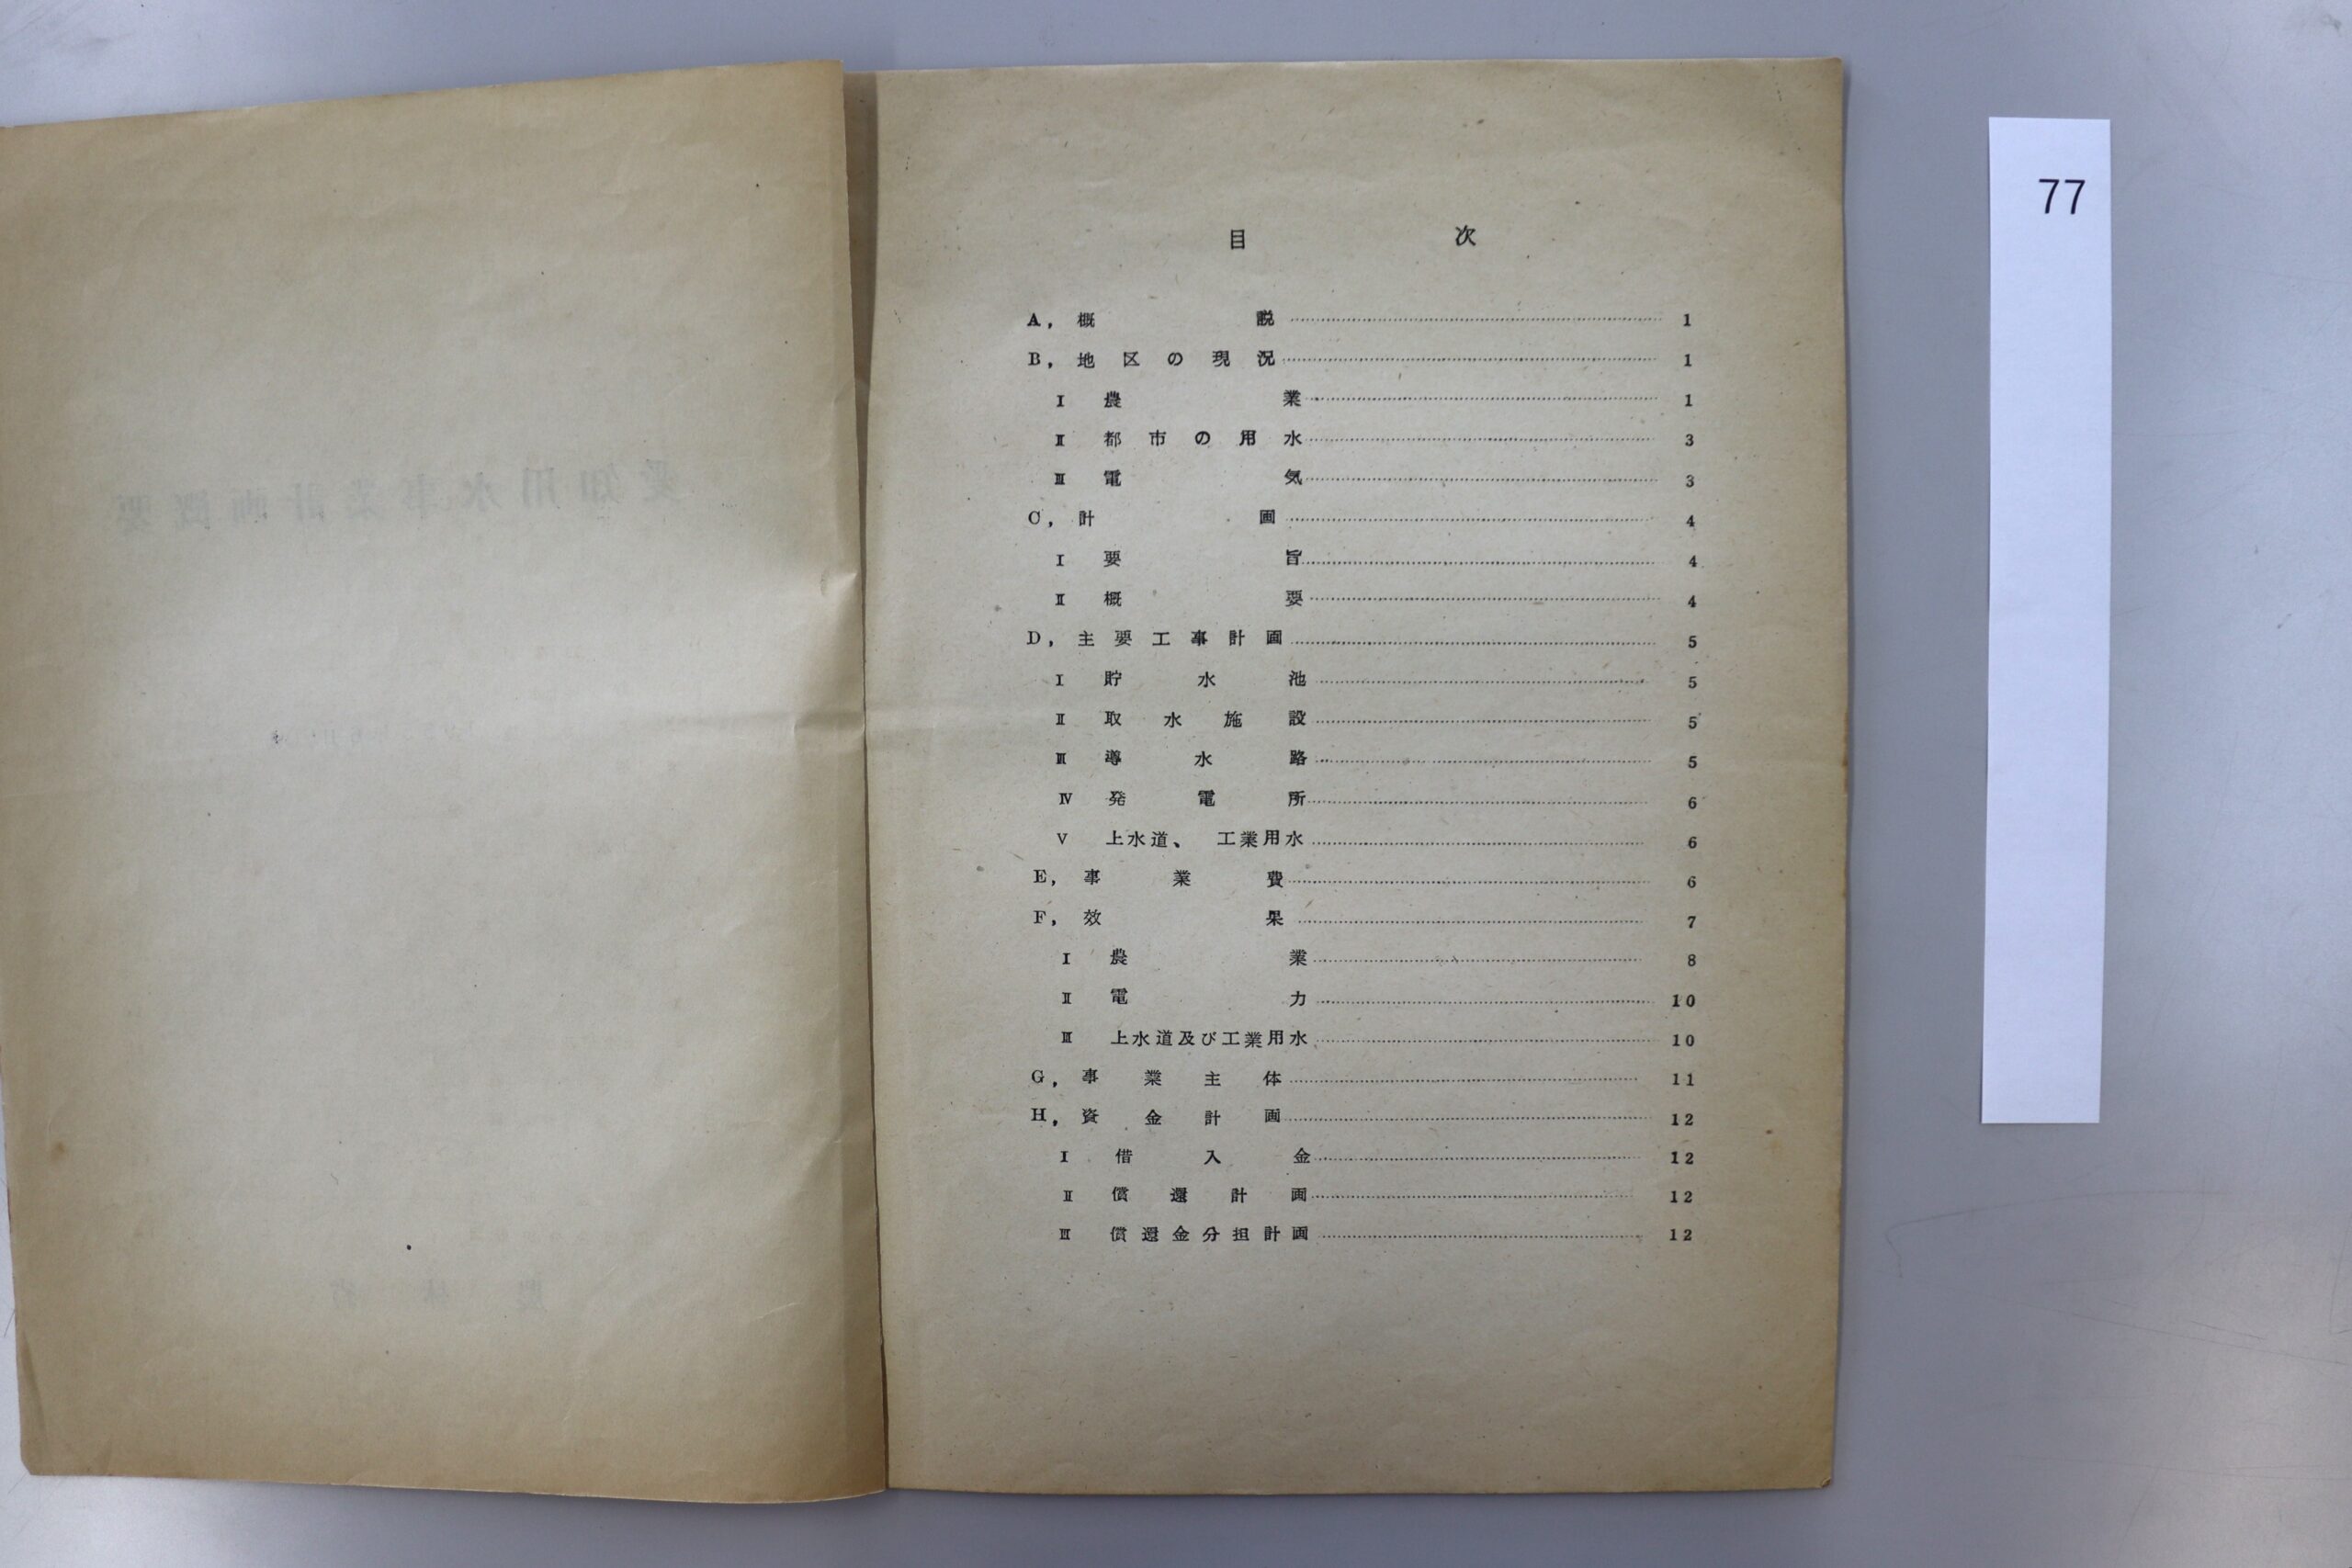 愛知用水事業計画概要
農林省
目次
A, 概説 1
B, 地区の現況 1
I 農業 1
II 都市の用水 3
III 電気 3
C, 計画 4
I 要旨 4
II 概要 4
D, 主要工事計画 5
I 貯水池 5
II 取水施設 5
III 導水路 5
IV 発電所 6
V 上水道、工業用水 6
E, 事業費 6
F, 効果 7
I 農業 8
II 電力 10
III 上水道及び工業用水 10
G, 事業主体 11
H, 資金計画 12
I 借入金 12
II 償還計画 12
III 償還金分担計画 12
77